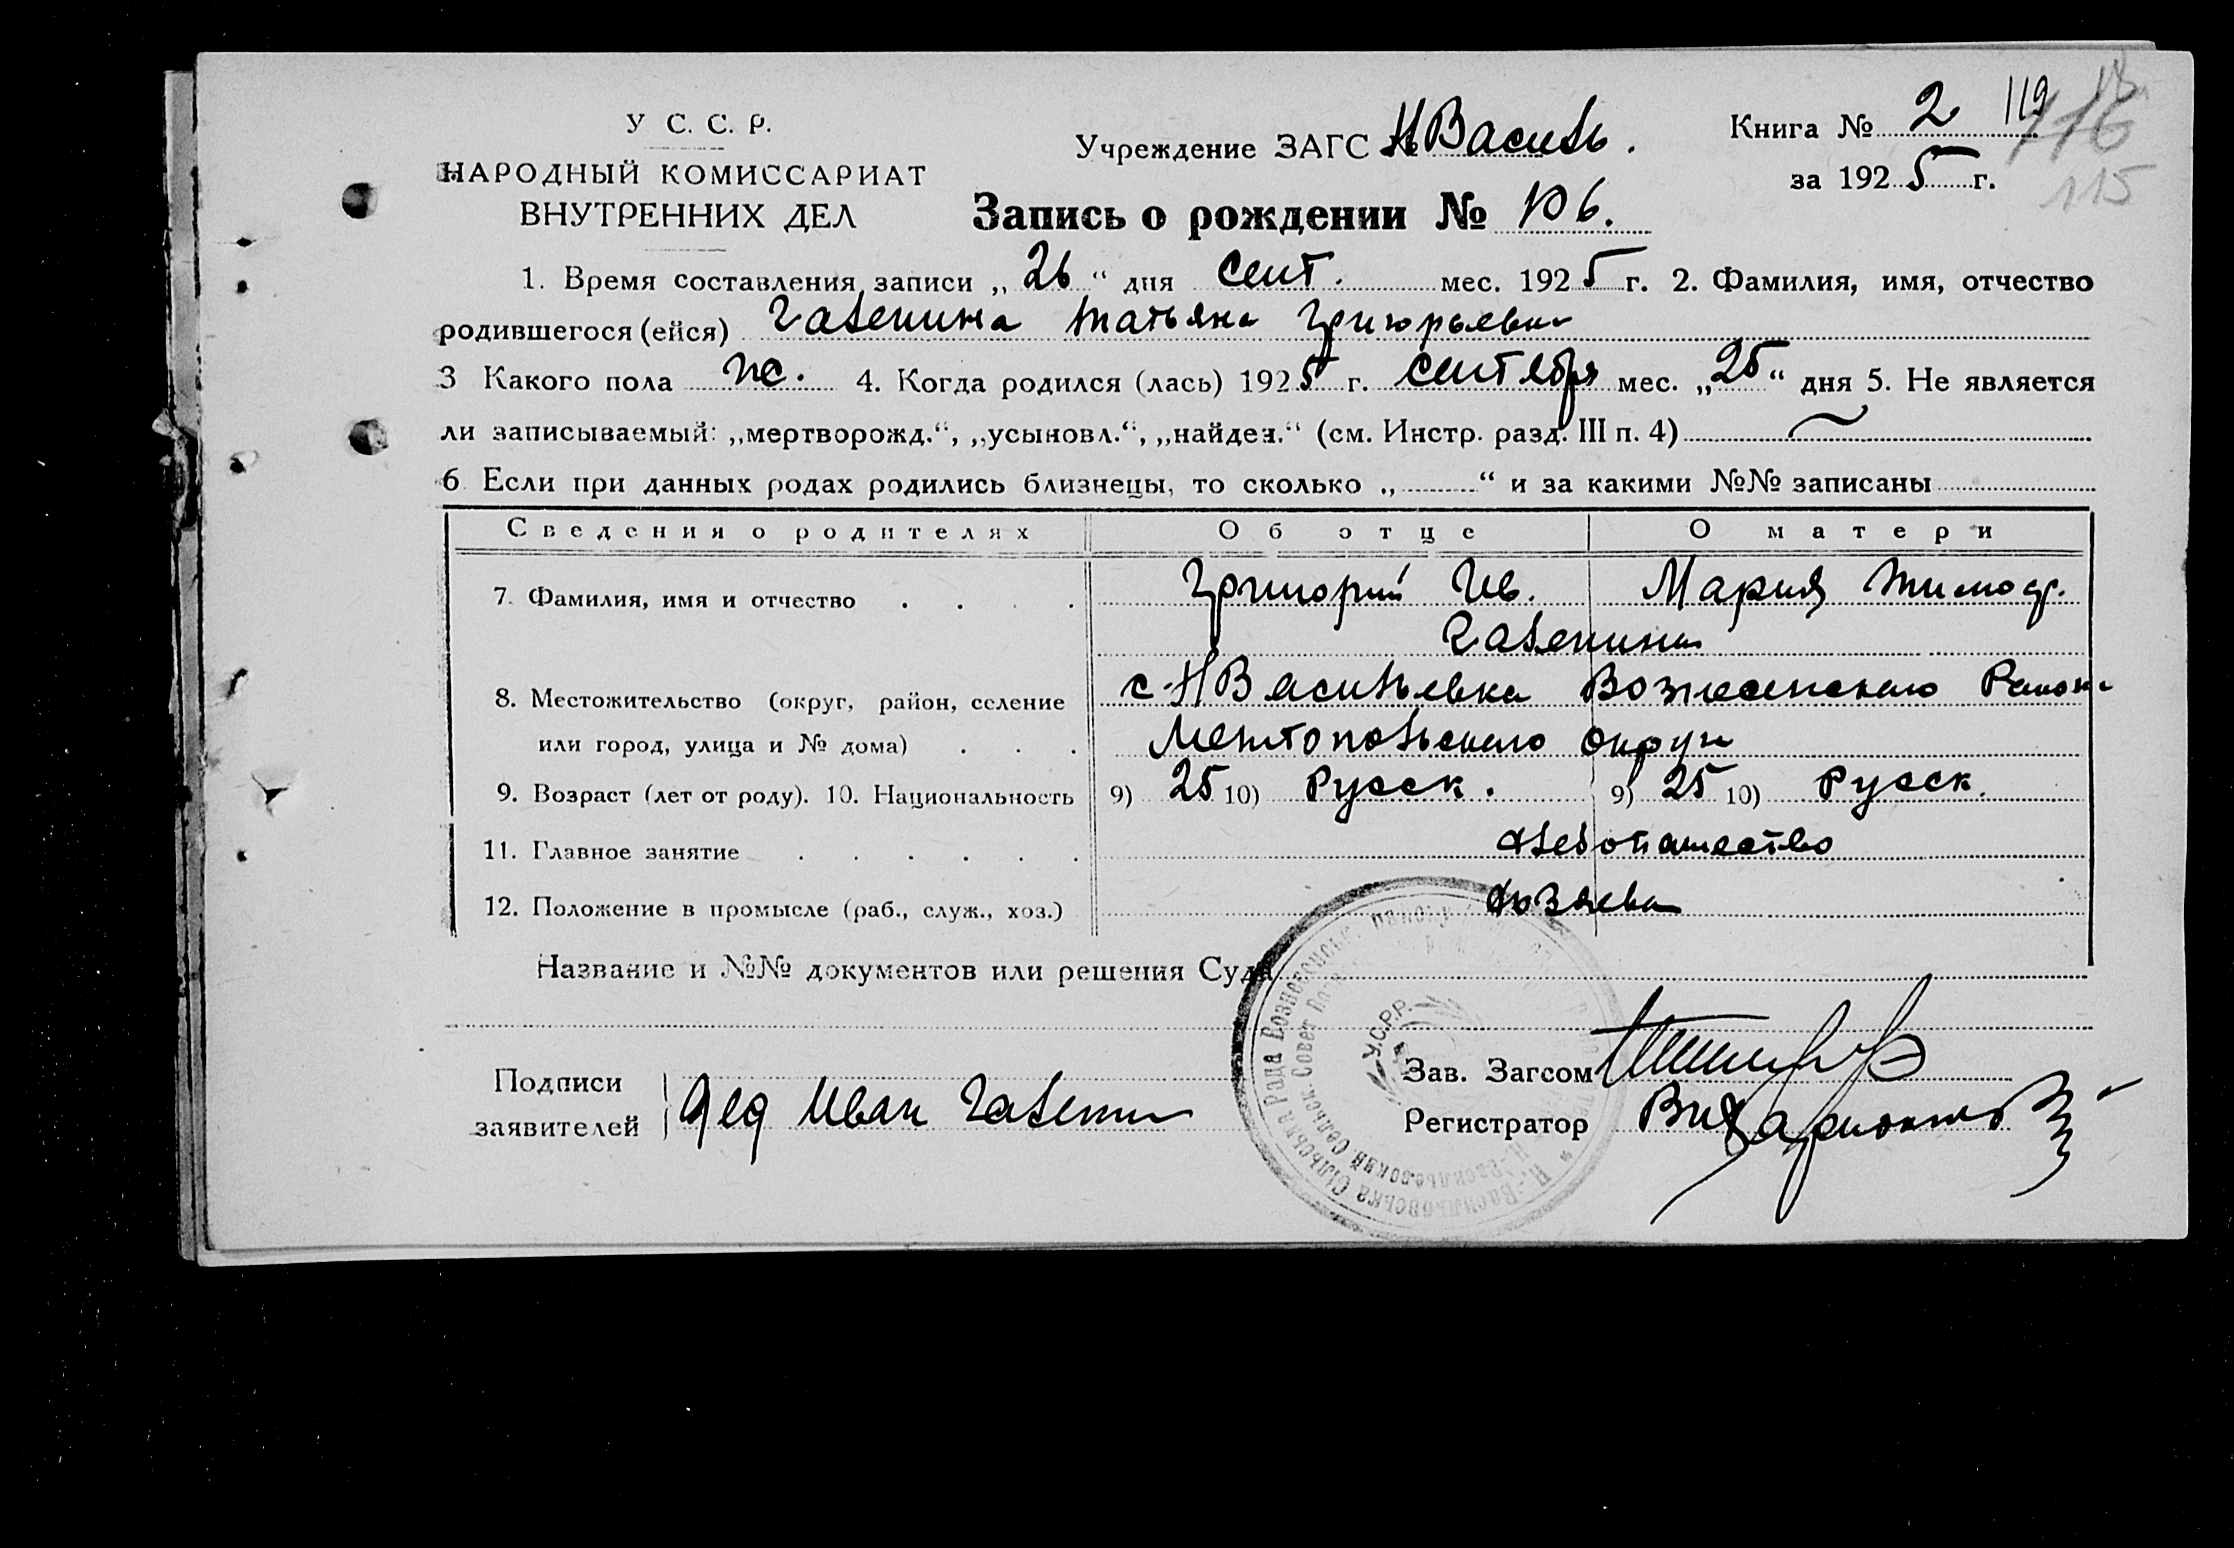 У С. С. Р.
НАРОДНЫЙ КОМИССАРИАТ
ВНУТРЕННИХ ДЕЛ
Учреждение ЗАГС НВасиль.
Книга № 2 119
116
115
за 1925 г.
Запись о рождении № 106.
1. Время составления записи „26“ дня сент. мес. 1925 г. 2. Фамилия, имя, отчество
родившегося (ейся) Галенина Татьяна Григорьевна
3 Какого пола ж. 4. Когда родился (лась) 1925 г. сентября мес. „25“ дня 5. Не является
ли записываемый: „мертворожд.“, „усыновл.“, „найден.“ (см. Инстр. разд. III п. 4)
6 Если при данных родах родились близнецы, то сколько „ “ и за какими №№ записаны
Сведения о родителях Об отце О матери
7. Фамилия, имя и отчество Григорий Ив. Мария Тимоф.
Галенины
8. Местожительство (округ, район, селение с. НВасильевка Вознесенского Района
или город, улица и № дома) Мелитопольского округа
9. Возраст (лет от роду). 10. Национальность 9) 25 10) Русск. 9) 25 10) Русск.
11. Главное занятие хлебопашество
12. Положение в промысле (раб., служ., хоз.) хозяева
Название и №№ документов или решения Суда
Подписи
заявителей дед Иван Галенин
У.С.Р.Р.
Зав. Загсом
Регистратор